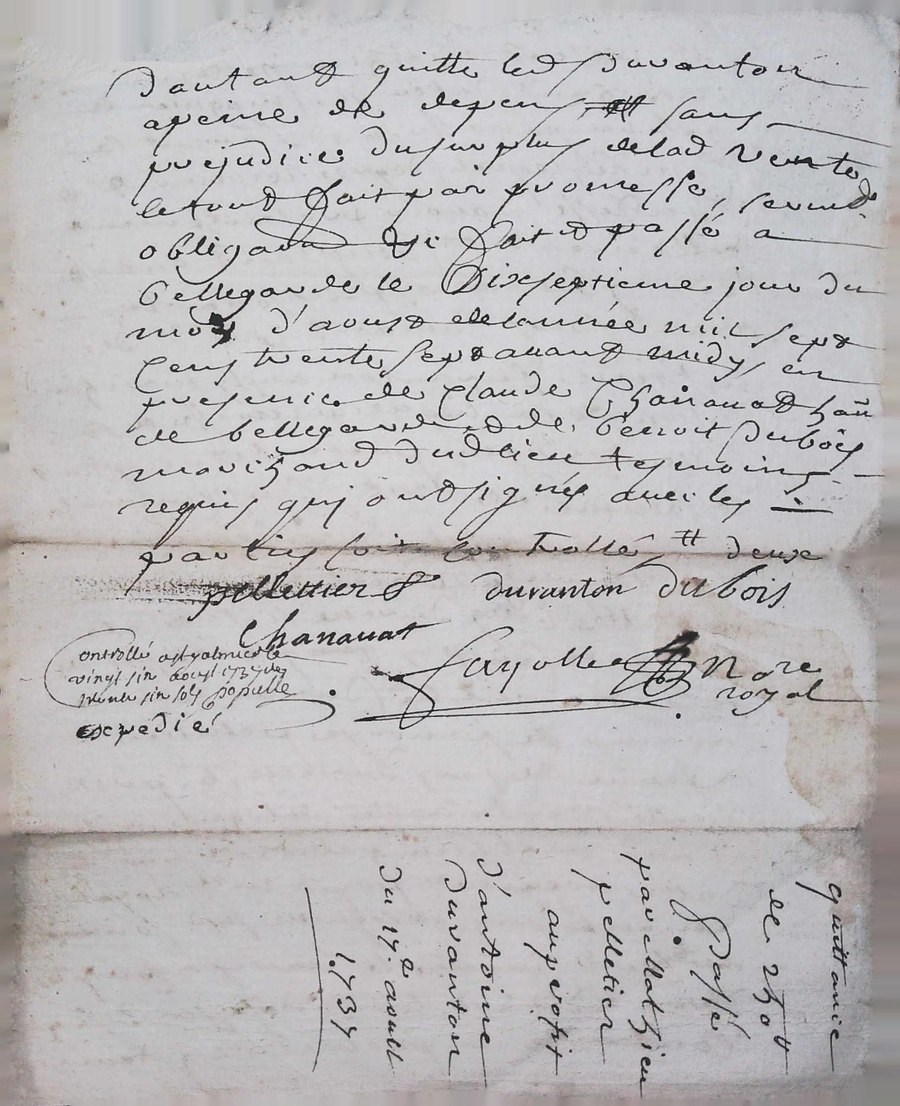 dautant quitte led duranton
apeine de depens sans
prejudice dusurplus delad vente
letout fait par promesse,
obligaon &c fait et passé a
bellegarde le dixseptieme jour du
mois d'aoust delannée mil sept
cens trente sept avant midy en
presence de Claude Chanauat
de bellegarde et de benoit dubois
marchand dudlieu tesmoins
requis qui ont signés avec les
parties soit controllés deux
pellettier duranton dubois
Chanauat
Controllé a st galmier le
vingt sin aoust 1737
trente sin sols
fayolle Nore
royal
expedié
quittance
de
passé
par Mathieu
pelletier
au profit
d'antoine
duranton
du 17e aoust
1737